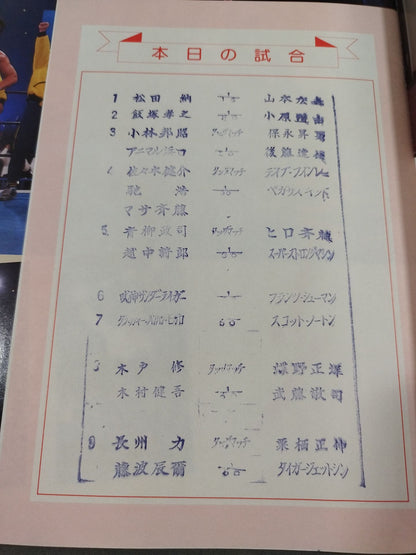 本日の試合
1 松田 納 1/15 山本広吉
2 飯塚孝之 1/20 小原道由
3 小林邦昭 タッグマッチ 保永昇男
アニマル浜口 1/30 後藤達俊
4 佐々木健介 タッグマッチ デイブ・フィンレー
馳 浩 1/30
マサ斉藤
5 青柳政司 タッグマッチ ヒロ斉藤
越中詩郎 1/60 スーパーストロングマシン
6 獣神サンダーライガー フランツ・シューマン
7 60 スコット・ノートン
8 木戸 修 タッグマッチ 蝶野正洋
木村健吾 1/60 武藤敬司
9 長州 力 タッグマッチ 栗栖正伸
藤波辰爾 1/60 タイガージェットシン